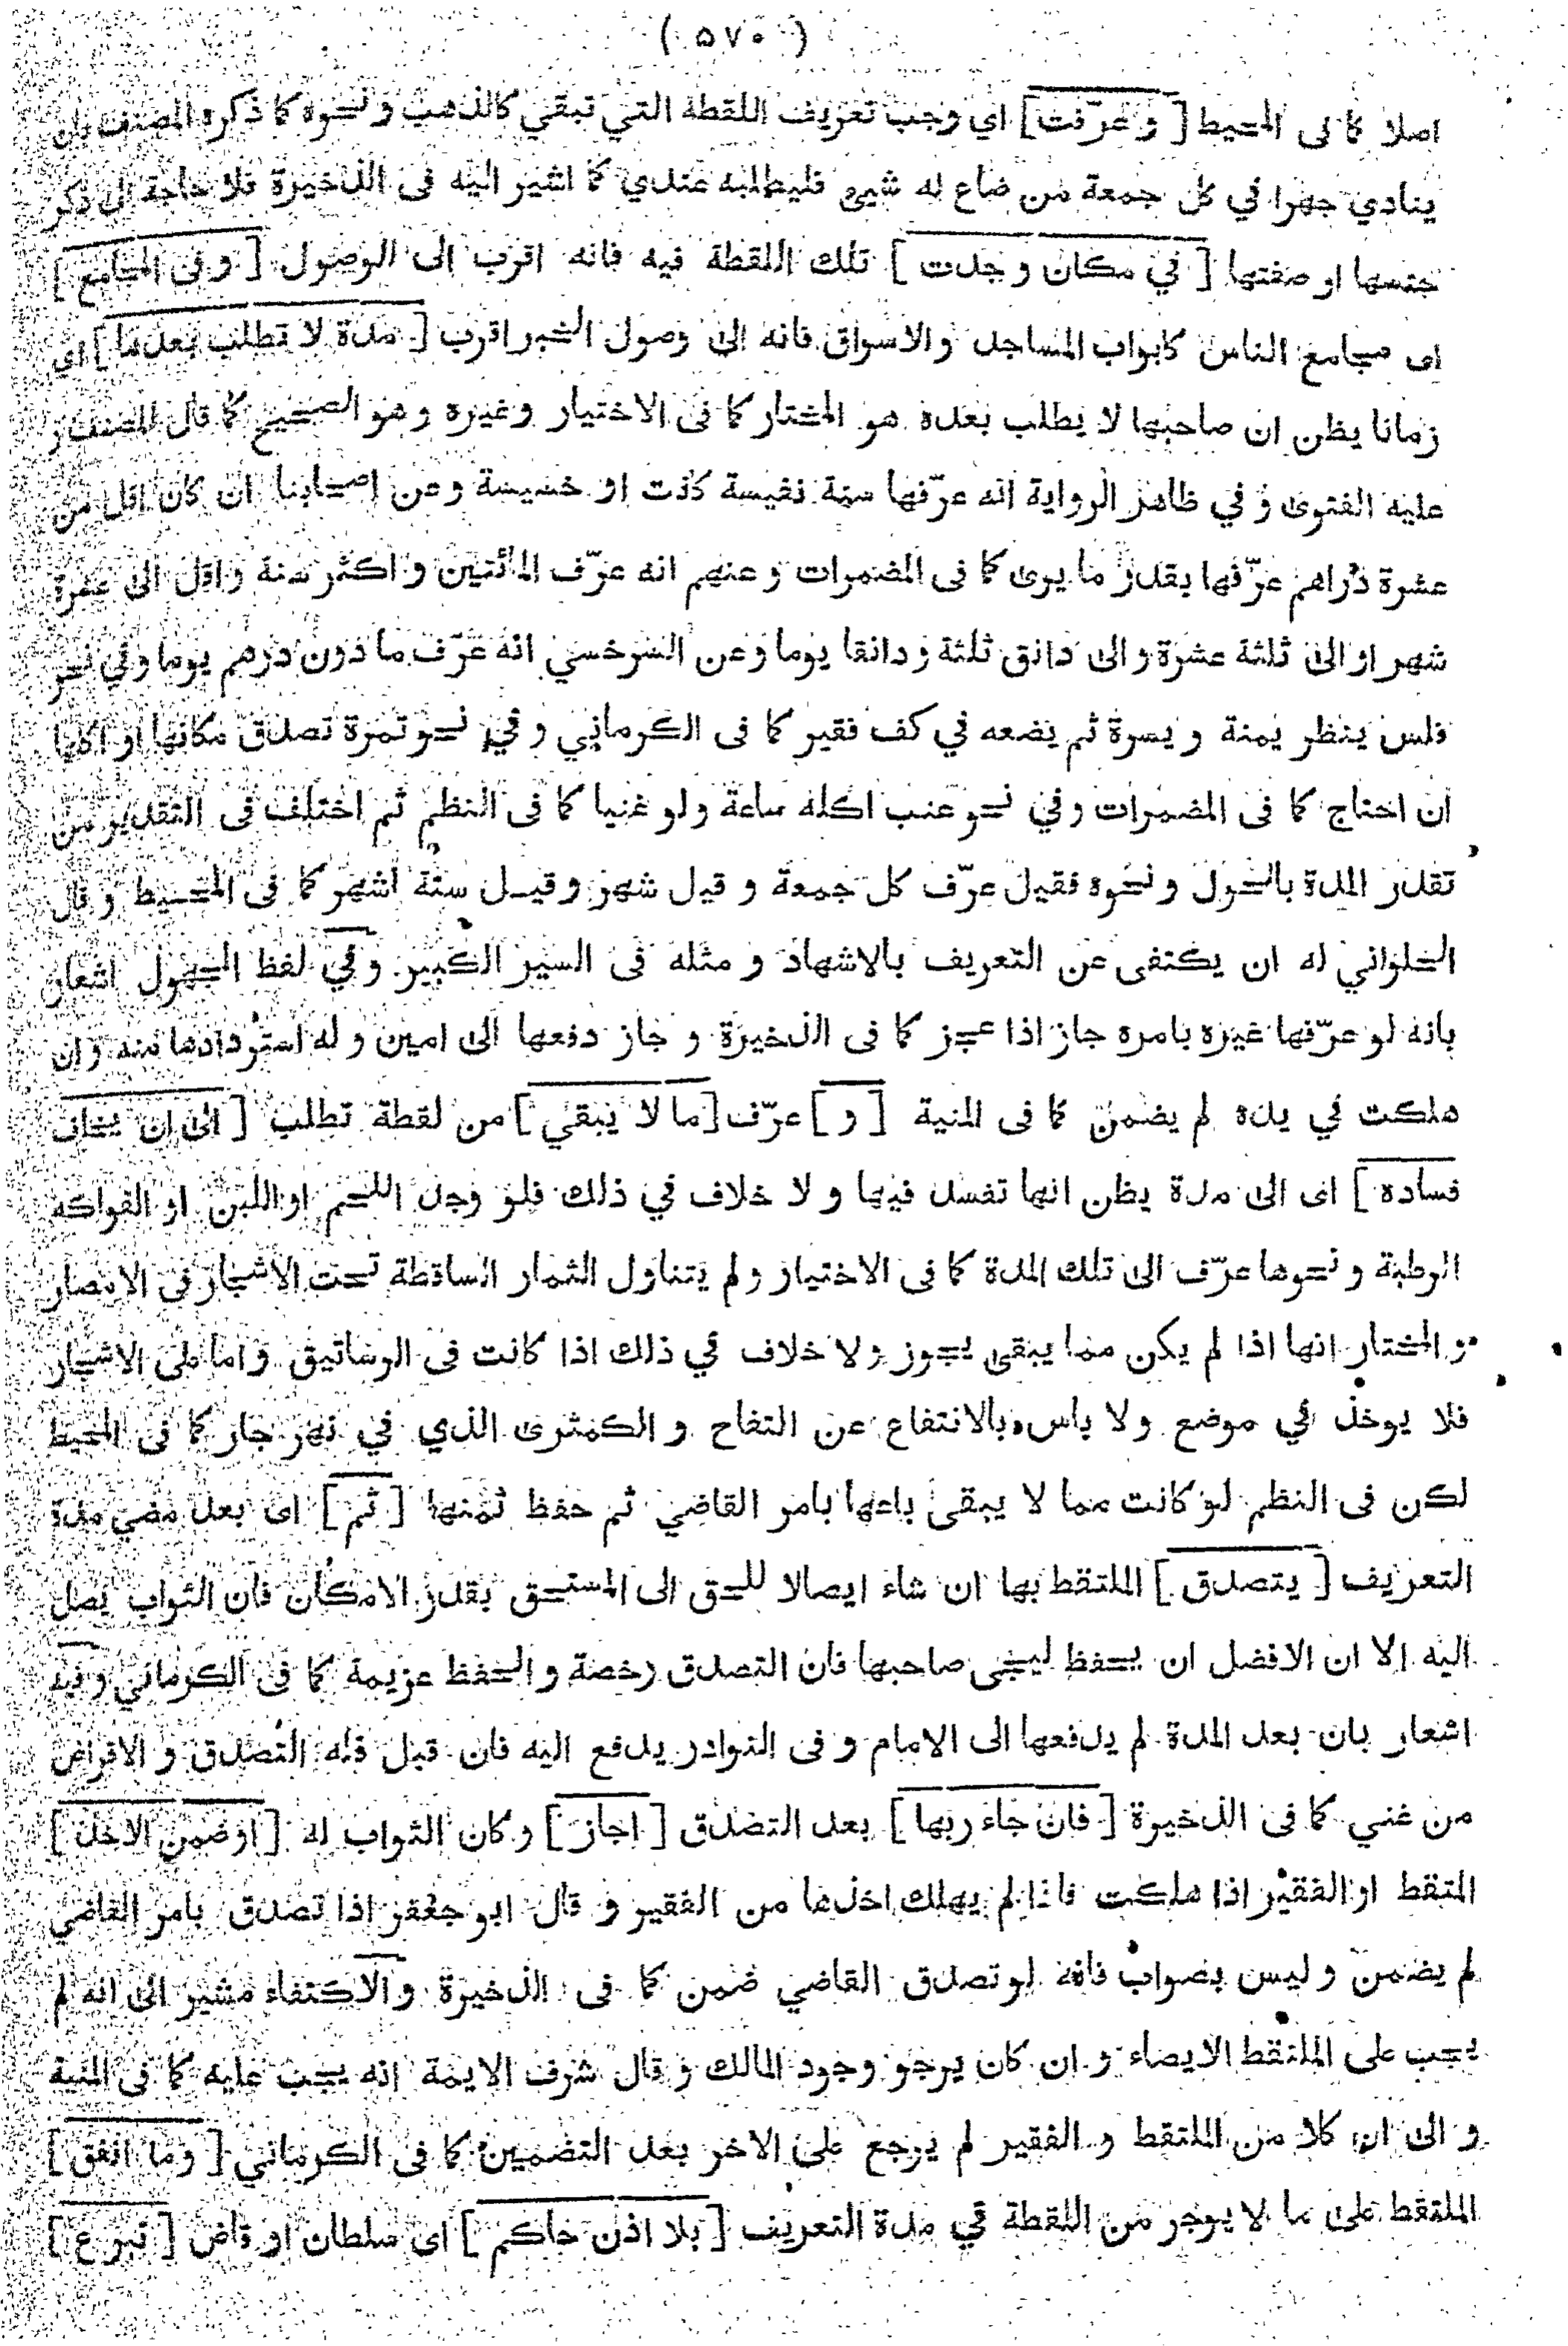 ( ۵۷۰ )
اصلا كما فى المحيط [ و عرّفت ] اي وجب تعريف اللقطة التي تبقي كالذهب و نحوه كما ذكره المصنف بان
ينادي جهرا في كل جمعة من ضاع له شيئ فليطلبه عندي كما اشير اليه فى الذخيرة فلا حاجة الى ذكر
جنسها او صفتها [ في مكان وجدت ] تلك اللقطة فيه فانه اقرب الى الوصول [ و فى المجامع ]
اى مجامع الناس كابواب المساجد والاسواق فانه الى وصول الخبر اقرب [ مدة لا تطلب بعدها ] اى
زمانا يظن ان صاحبها لا يطلب بعده هو المختار كما فى الاختيار وغيره وهو الصحيح كما قال المصنف و
عليه الفتوى و في ظاهر الرواية انه عرّفها سنة نفيسة كانت او خسيسة وعن اصحابنا ان كان اقل من
عشرة دراهم عرّفها بقدر ما يرى كما فى المضمرات و عنهم انه عرّف المائتين و اكثر سنة و اقل الى عشرة
شهر او الى ثلثة عشرة و الى دانق ثلثة و دانقا يوما و عن السرخسي انه عرّف ما دون درهم يوما و في نحو
فلس ينظر يمنة و يسرة ثم يضعه في كف فقير كما فى الكرماني و في نحو تمرة تصدق مكانها او اكلها
ان احتاج كما فى المضمرات وفي نحو عنب اكله ساعة ولو غنيا كما فى النظم ثم اختلف فى التقدير من
تقدر المدة بالحول و نحوه فقيل عرّف كل جمعة و قيل شهر و قيل ستة اشهر كما فى المحيط و قال
الحلواني له ان يكتفى عن التعريف بالاشهاد و مثله فى السير الكبير وفي لفظ المجهول اشعار
بانه لو عرّفها غيره بامره جاز اذا عجز كما فى الذخيرة و جاز دفعها الى امين و له استردادها منه و ان
هلكت في يده لم يضمن كما فى المنية [ و ] عرّف [ ما لا يبقي ] من لقطة تطلب [ الى ان يخاف
فساده ] اى الى مدة يظن انها تفسد فيها و لا خلاف في ذلك فلو وجد اللحم او اللبن او الفواكه
الرطبة و نحوها عرّف الى تلك المدة كما فى الاختيار و لم يتناول الثمار الساقطة تحت الاشجار فى الامصار
و المختار انها اذا لم يكن مما يبقى يجوز و لا خلاف في ذلك اذا كانت فى الرساتيق و اما على الاشجار
فلا يوخذ في موضع ولا باس بالانتفاع عن التفاح و الكمثرى الذي في نهر جار كما فى المحيط
لكن فى النظم لو كانت مما لا يبقى باعها بامر القاضي ثم حفظ ثمنها [ ثم ] اى بعد مضي مدة
التعريف [ يتصدق ] الملتقط بها ان شاء ايصالا للحق الى المستحق بقدر الامكان فان الثواب يصل
اليه الا ان الافضل ان يحفظ ليجى صاحبها فان التصدق رخصة و الحفظ عزيمة كما فى الكرماني و فيه
اشعار بان بعد المدة لم يدفعها الى الامام و فى النوادر يدفع اليه فان قبل فله التصدق و الاقراض
من غني كما فى الذخيرة [ فان جاء ربها ] بعد التصدق [ اجاز ] و كان الثواب له [ او ضمن الاخذ ]
المتقط او الفقير اذا هلكت فاذا لم يهلك اخذها من الفقير و قال ابو جعفر اذا تصدق بامر القاضي
لم يضمن و ليس بصواب فانه لو تصدق القاضي ضمن كما فى الذخيرة و الاكتفاء مشير الى انه لم
يجب على الملتقط الايصاء و ان كان يرجو وجود المالك و قال شرف الايمة انه يجب عليه كما فى المنية
و الى ان كلا من الملتقط و الفقير لم يرجع على الاخر بعد التضمين كما فى الكرماني [ وما انفق ]
الملتقط على ما لا يوجر من اللقطة في مدة التعريف [ بلا اذن حاكم ] اى سلطان او قاض [ تبرع ]